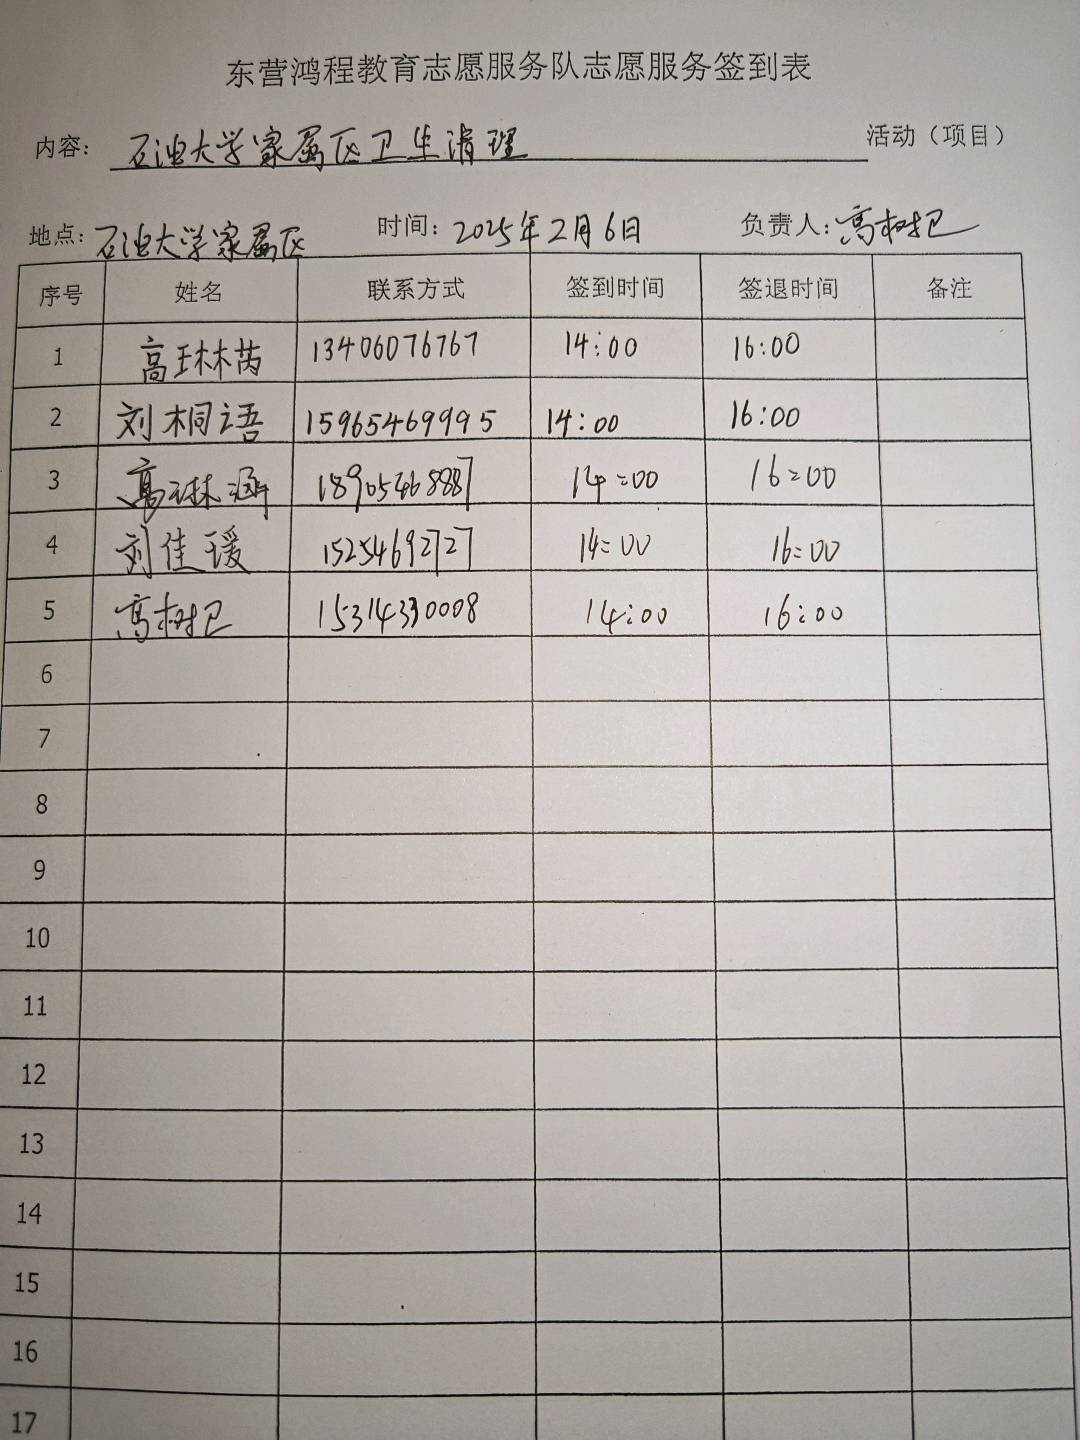 东营鸿程教育志愿服务队志愿服务签到表
内容: 石油大学家属区卫生清理 活动（项目）
地点: 石油大学家属区 时间: 2025年2月6日 负责人: 高树
序号 姓名 联系方式 签到时间 签退时间 备注
1 高琳芮 13406076767 14:00 16:00
2 刘桐语 15965469995 14:00 16:00
3 高琳涵 18905468887 14:00 16:00
4 刘佳瑗 15254692727 14:00 16:00
5 高树 15314330008 14:00 16:00
6
7
8
9
10
11
12
13
14
15
16
17